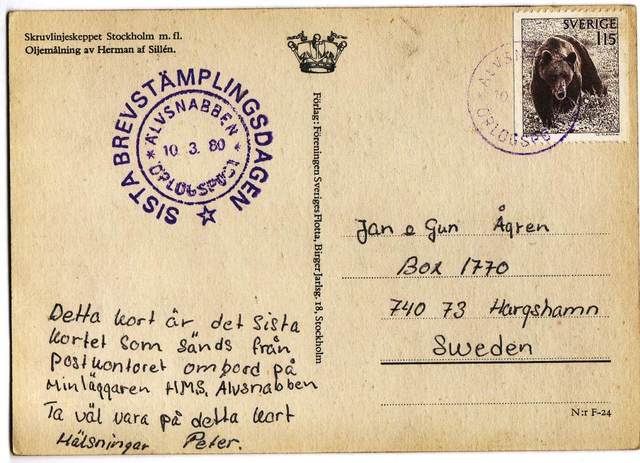 Skruvlinjeskeppet Stockholm m. fl.
Oljemålning av Herman af Sillén.
SISTA BREVSTÄMPLINGSDAGEN
ÄLVSNABBEN
10. 3. 80
ÖRLOGSPOST
Förlag: Föreningen Sveriges Flotta, Birger Jarlsg. 18, Stockholm
SVERIGE
115
ÄLVSN
10
ÖRLOGSPO
Jan o Gun Ågren
Box 1770
740 73 Hargshamn
Sweden
Detta kort är det sista
kortet som sänds från
postkontoret ombord på
Minläggaren HMS. Älvsnabben
Ta väl vara på detta kort
Hälsningar Peter.
N:r F-24